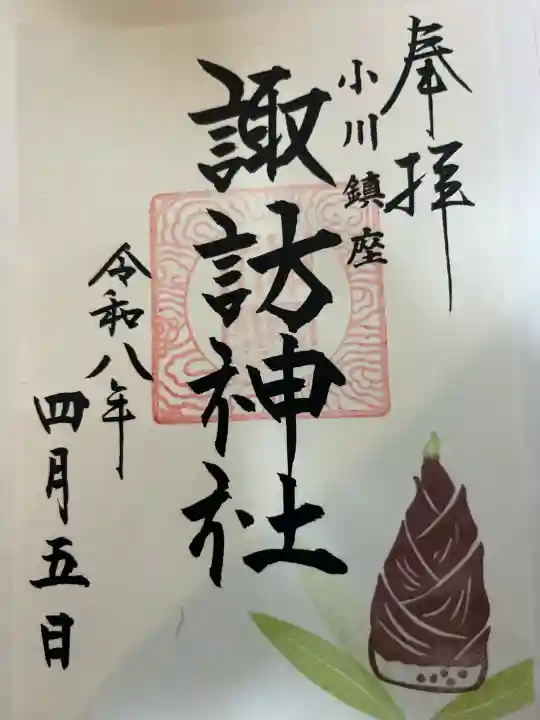 奉拝
小川鎮座
諏訪神社
令和八年
四月五日